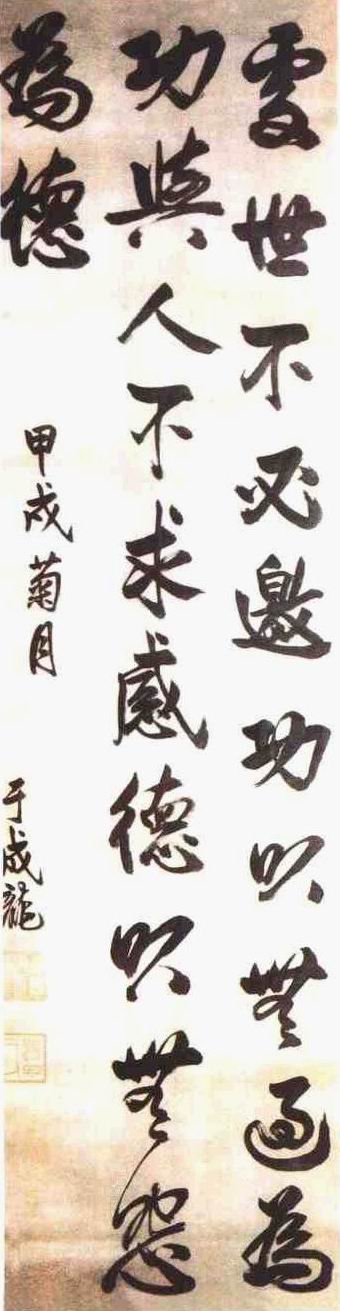 處世不必邀功以無過為
功與人不求感德以無怨
為德
甲戌菊月
于成龍